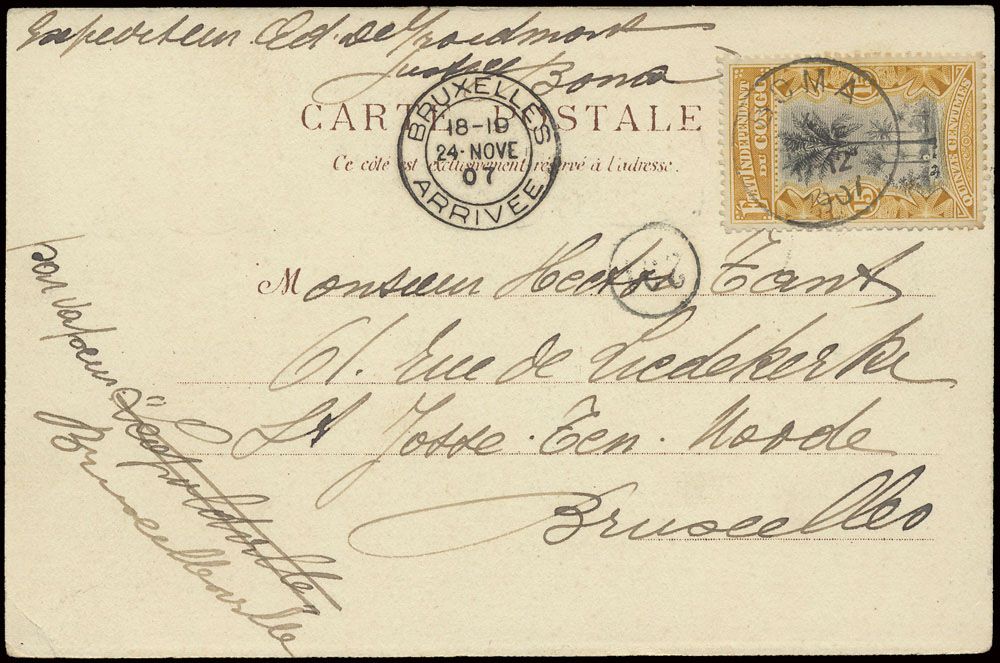 Expediteur Ed. de Froidmont
Justice Boma
CARTE POSTALE
Ce côté est exclusivement réservé à l'adresse.
BRUXELLES
18-19
24·NOVE
07
ARRIVÉE
ÉTAT INDÉPENDANT
DU CONGO
15 15
QUINZE CENTIMES
BOMA
1907
Monsieur Hector Tant
61. Rue de Liedekerke
St Josse-Ten-Noode
Bruxelles
par vapeur
"Léopoldville
Bruxellesville